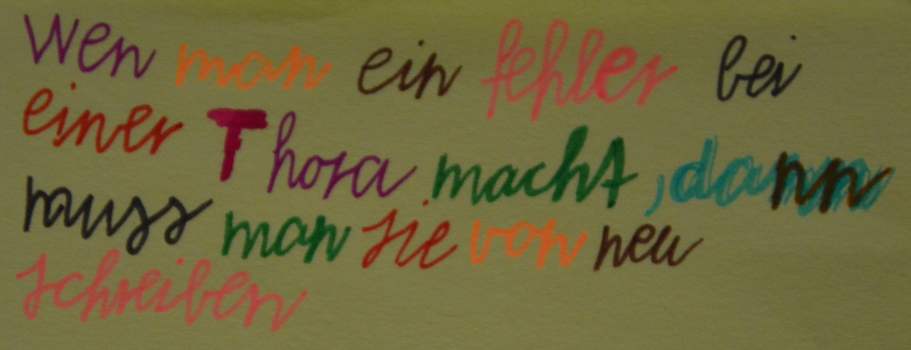 Wen man ein fehler bei
einer Thora macht, dann
muss man sie von neu
schreiben